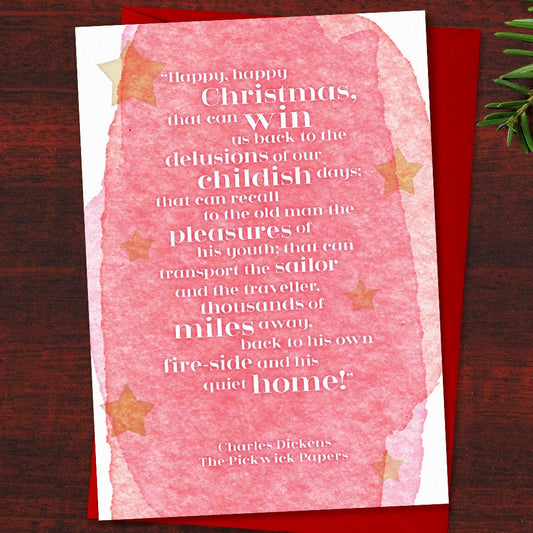 “Happy, happy
Christmas,
that can win
us back to the
delusions of our
childish days;
that can recall
to the old man the
pleasures of
his youth; that can
transport the sailor
and the traveller,
thousands of
miles away,
back to his own
fire-side and his
quiet home!”
Charles Dickens
The Pickwick Papers